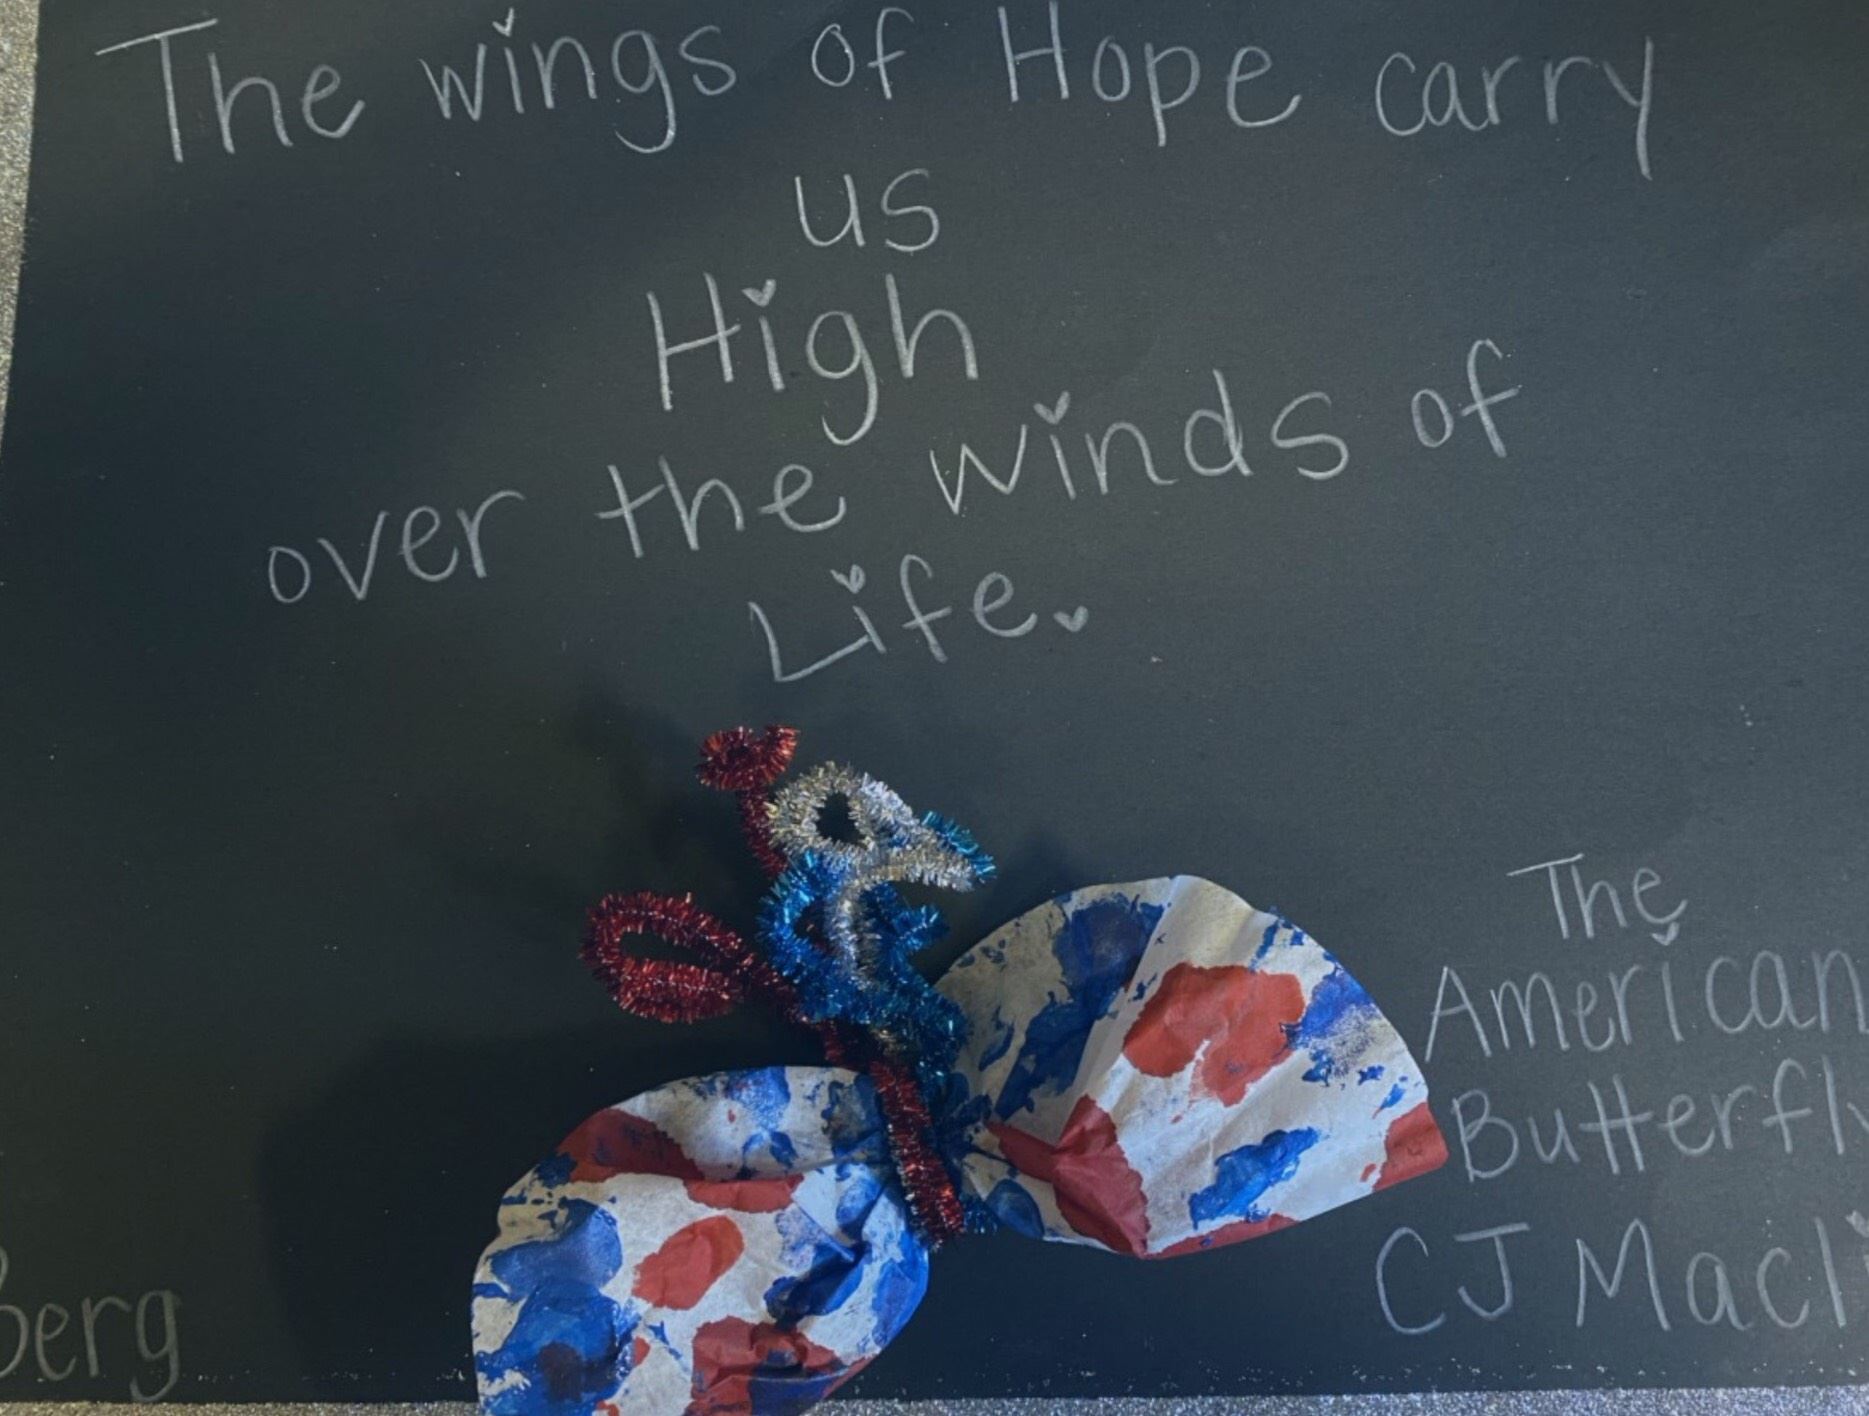 The wings of Hope carry
us
High
over the winds of
Life.
The
American
Butterfly
CJ Macli
berg